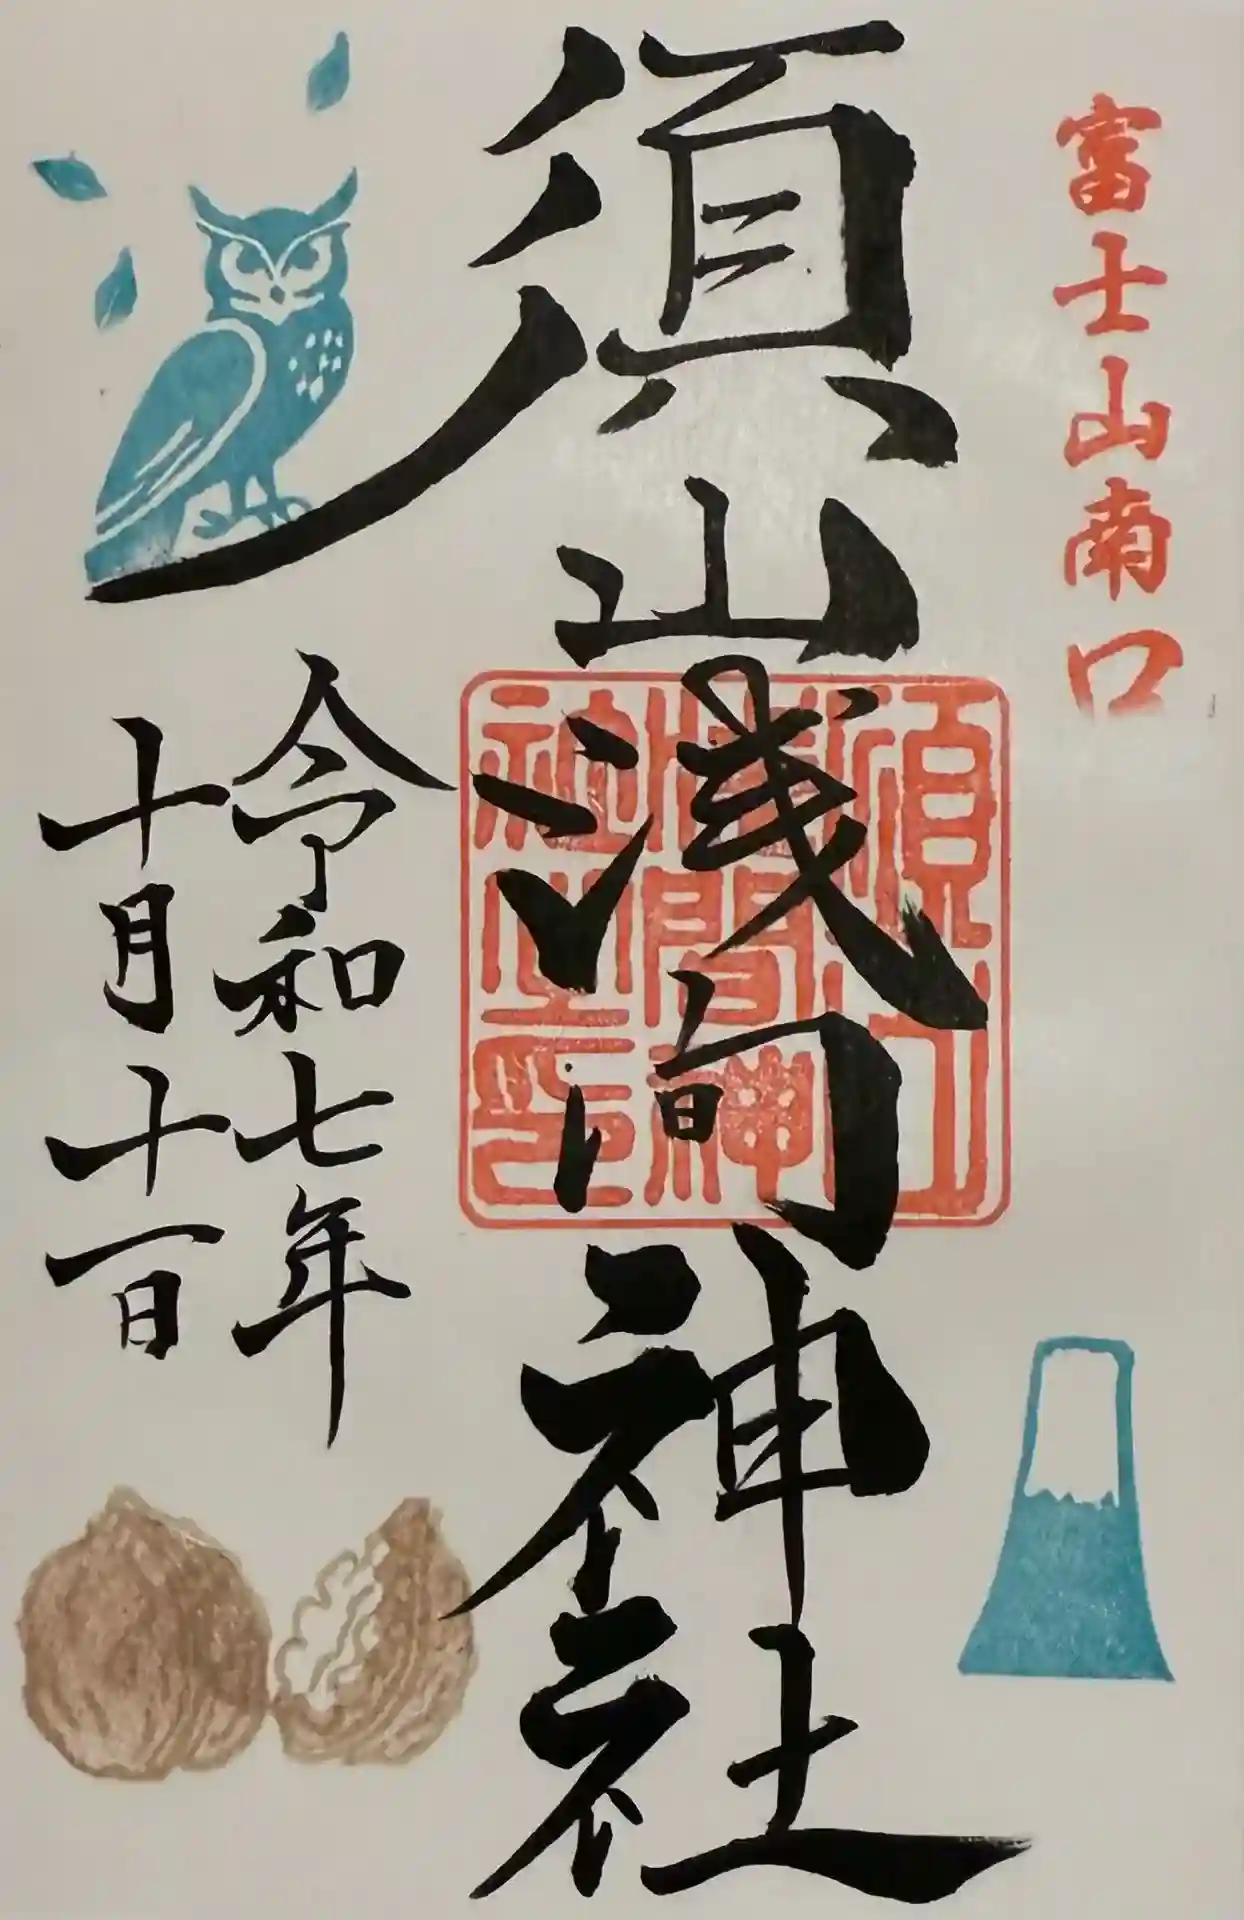 富士山南口
須山浅間神社
須山浅間神社之印
令和七年
十月十一日